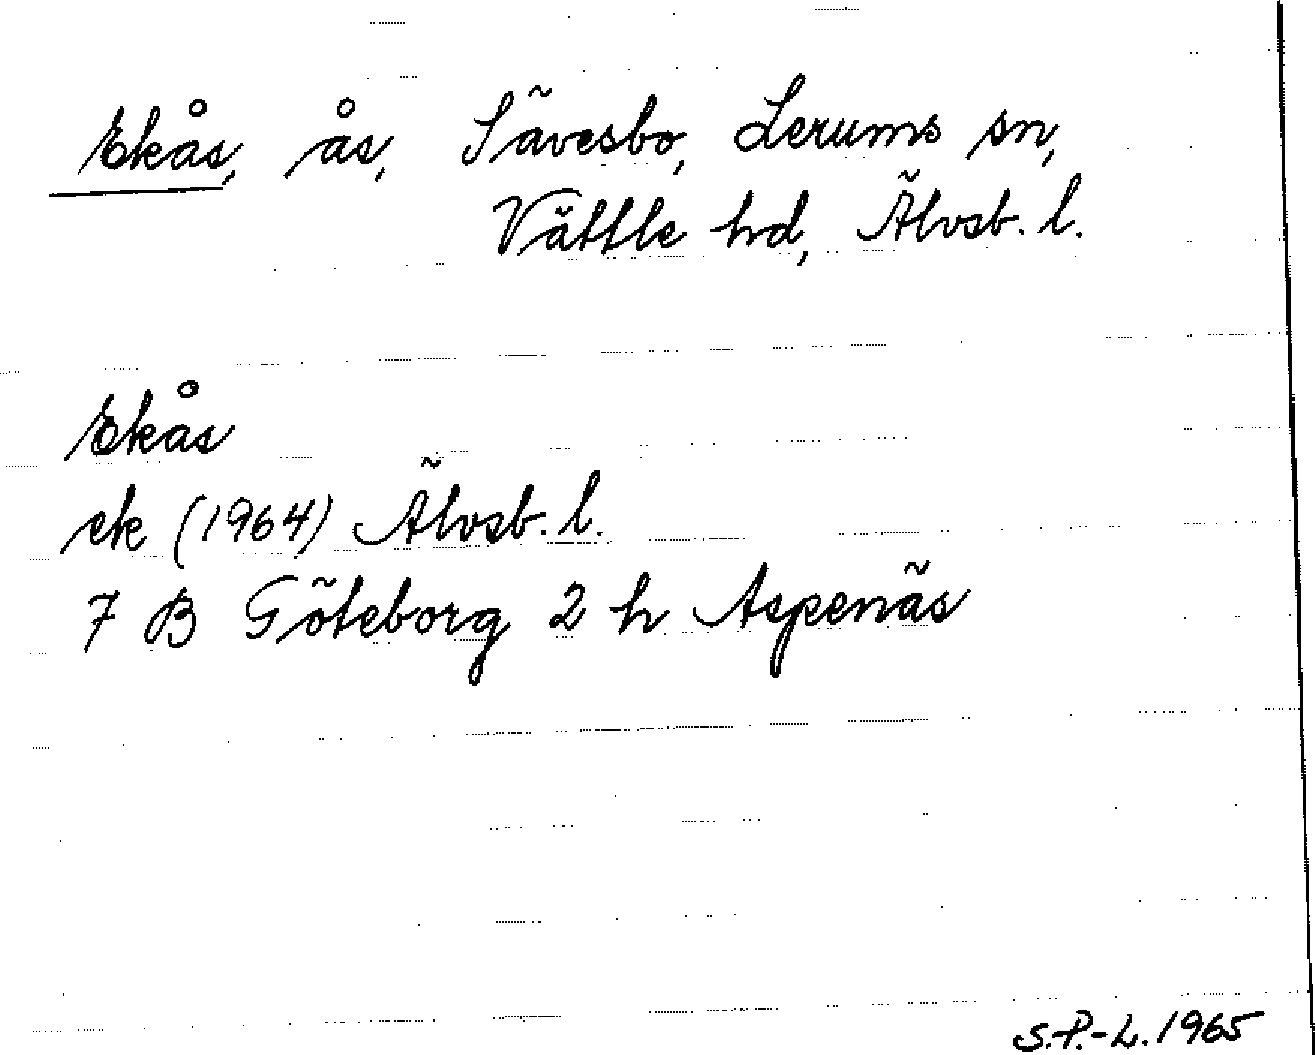 Ekås, ås, Sävesbo, Lerums sn,
Vättle hd, Älvsb. l.
Ekås
ek (1964) Älvsb. l.
7 B Göteborg 2 h Aspenäs
S.P.-L. 1965